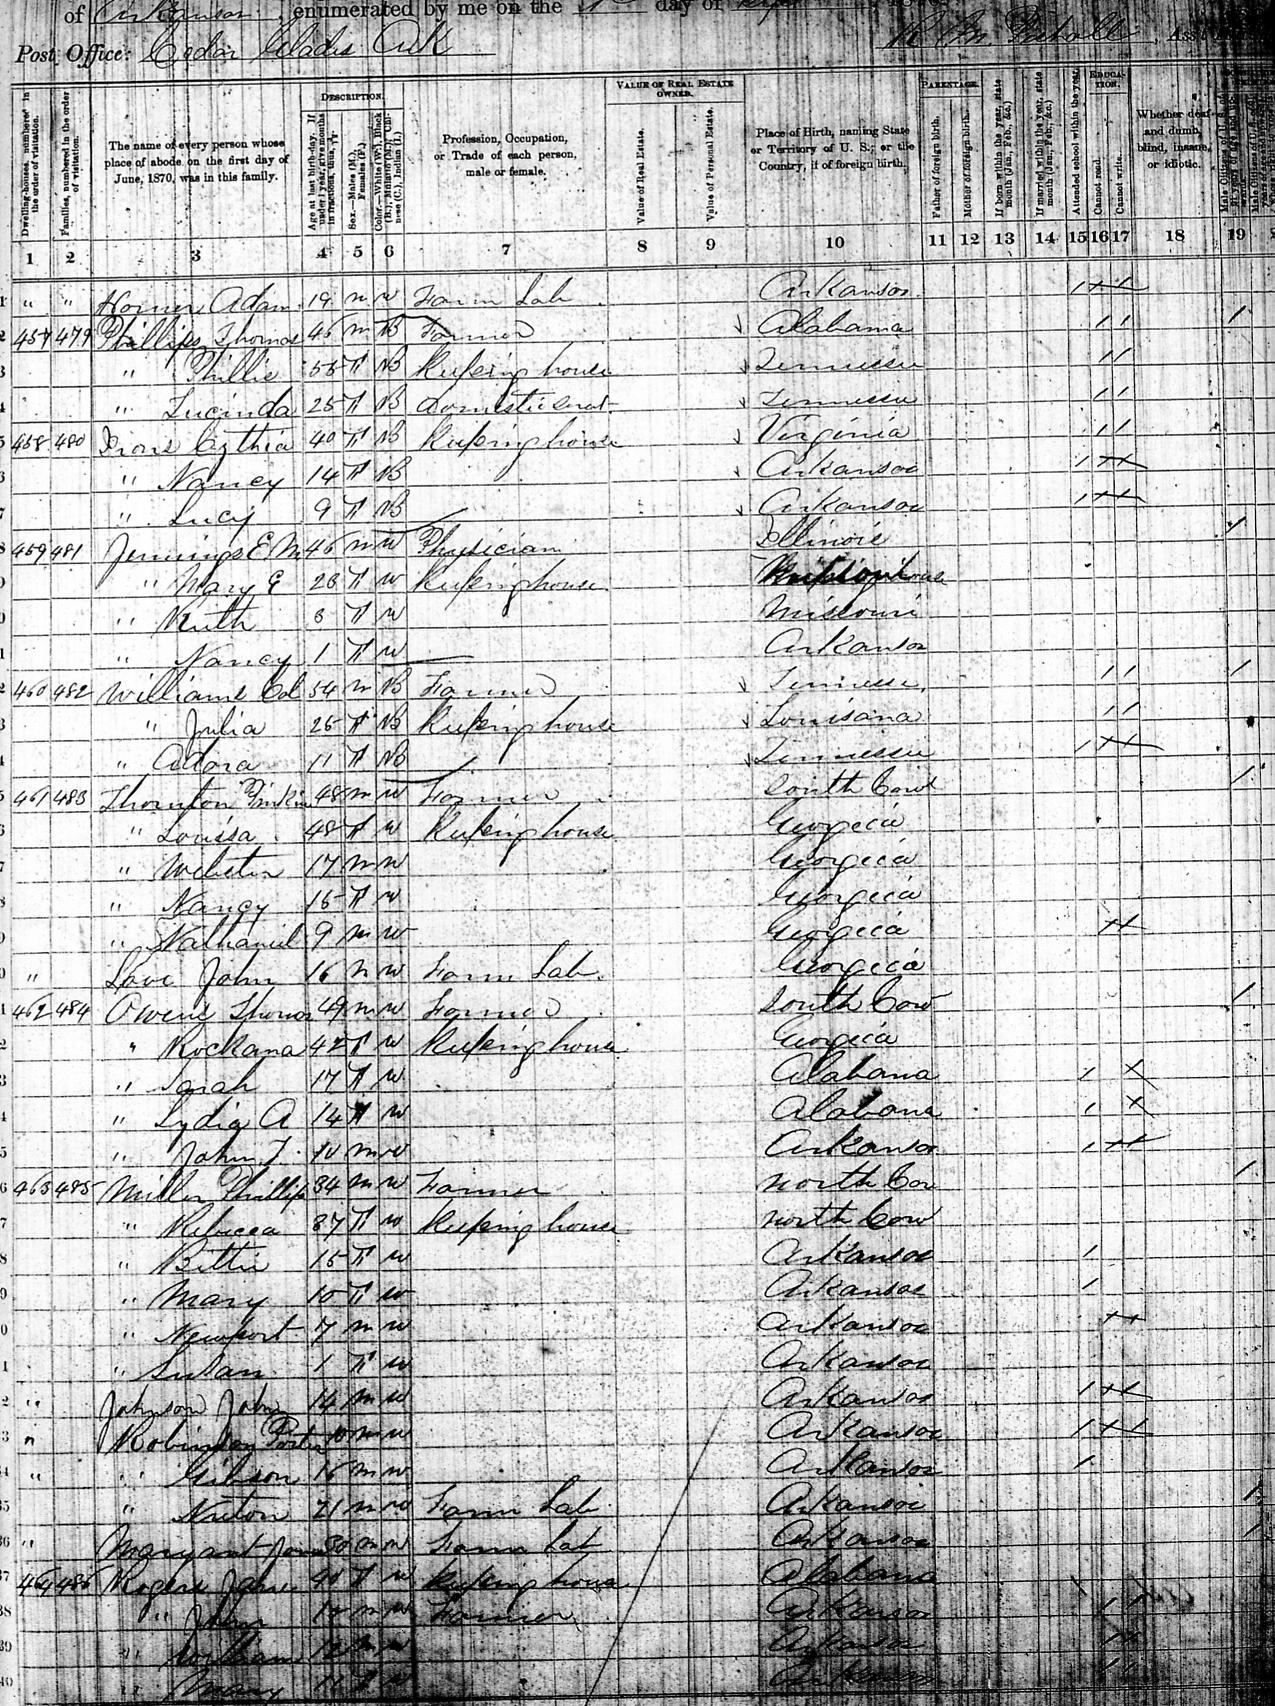 of Arkansas, enumerated by me on the day of
Post Office: Cedar Glades Ark
Dwelling-houses, numbered in the order of visitation.
Families, numbered in the order of visitation.
The name of every person whose place of abode on the first day of June, 1870, was in this family.
DESCRIPTION.
Age at last birth-day. If under 1 year, give months in fractions, thus,
Sex.—Males (M.), Females (F.)
Color.—White (W.), Black (B.), Mulatto (M.), Chinese (C.), Indian (I.)
Profession, Occupation, or Trade of each person, male or female.
VALUE OF REAL ESTATE OWNED.
Value of Real Estate.
Value of Personal Estate.
Place of Birth, naming State or Territory of U. S.; or the Country, if of foreign birth.
PARENTAGE.
Father of foreign birth.
Mother of foreign birth.
If born within the year, state month (Jan., Feb., &c.)
If married within the year, state month (Jan., Feb., &c.)
Attended school within the year.
EDUCATION.
Cannot read.
Cannot write.
Whether deaf and dumb, blind, insane, or idiotic.
1 2 3 4 5 6 7 8 9 10 11 12 13 14 15 16 17 18 19
" " Horner Adam 19 m w Farm Lab Arkansas
457 479 Phillips Thomas 45 m B Farmer Alabama
" Phillis 55 F B Keeping house Tennessee
" Lucinda 25 F B Domestic Servt Tennessee
458 480 Irons Cythia 40 F B Keeping house Virginia
" Nancy 14 F B Arkansas
" Lucy 9 F B Arkansas
459 481 Jennings E M 46 m w Physician Illinois
" Mary E 23 F w Keeping house
" Ruth 3 F w Missouri
" Nancy 1 F w Arkansas
460 482 Williams Col 54 m B Farmer Tennessee
" Julia 25 F B Keeping house Louisana
" Adora 11 F B Tennessee
461 483 Thornton Pinkin 48 m w Farmer South Card
" Louisa 48 F w Keeping house Georgia
" Webster 17 m w Georgia
" Nancy 15 F w Georgia
" Nathaniel 9 m w Georgia
" Love John 16 m w Farm Lab Georgia
462 484 Owens Thomas 49 m w Farmer South Caro
" Rockana 42 F w Keeping house Georgia
" Sarah 17 F w Alabama
" Lydia A 14 F w Alabama
" John T. 10 m w Arkansas
463 485 Miller Phillip 34 m w Farmer North Car
" Rebecca 37 F w Keeping house North Caro
" Bettie 15 F w Arkansas
" Mary 10 F w Arkansas
" Newport 7 m w Arkansas
" Susan 1 F w Arkansas
" Johnson John 14 m w Arkansas
" Robinson Porter 10 m w Arkansas
" " Gibson 16 m w Arkansas
" Newton 21 m w Farm Lab Arkansas
" m w Farm Lab Arkansas
464 486 Rogers Jane 40 F w Keeping house Alabama
" John m w Farmer Arkansas
" William m w Arkansas
" Mary 11 F w Arkansas